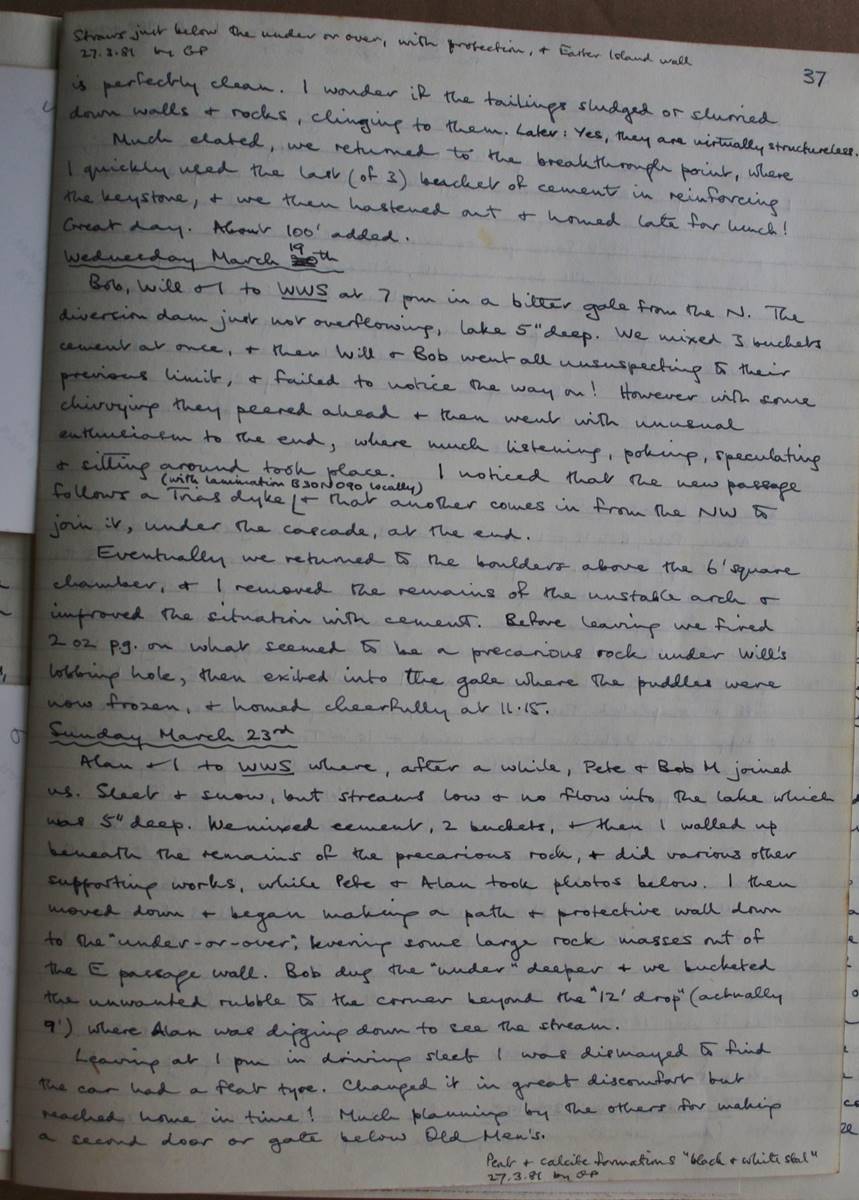 Straws just below the under or over, with protection, & Easter Island wall
27.3.81 by GP
37
is perfectly clean. I wonder if the tailings sludged or slurried
down walls & rocks, clinging to them. Later: Yes, they are virtually structureless.
Much elated, we returned to the breakthrough point, where
I quickly used the last (of 3) bucket of cement in reinforcing
the keystone, & we then hastened out & homed late for lunch!
Great day. About 100' added.
Wednesday March 19th
Bob, Will & I to WWS at 7 pm in a bitter gale from the N. The
diversion dam just not overflowing, lake 5" deep. We mixed 3 buckets
cement at once, & then Will & Bob went all unsuspecting to their
previous limit, & failed to notice the way on! However with some
chivvying they peered ahead & then went with unusual
enthusiasm to the end, where much listening, poking, speculating
& sitting around took place. I noticed that the new passage
(with lamination B30N090 locally)
follows a Trias dyke & that another comes in from the NW to
join it, under the cascade, at the end.
Eventually we returned to the boulders above the 6' square
chamber, & I removed the remains of the unstable arch &
improved the situation with cement. Before leaving we fired
2 oz p.g. on what seemed to be a precarious rock under Will's
lobbing hole, then exited into the gale where the puddles were
now frozen, & homed cheerfully at 11.15.
Sunday March 23rd
Alan & I to WWS where, after a while, Pete & Bob M joined
us. Sleet & snow, but streams low & no flow into the lake which
was 5" deep. We mixed cement, 2 buckets, & then I walled up
beneath the remains of the precarious rock, & did various other
supporting works, while Pete & Alan took photos below. I then
moved down & began making a path & protective wall down
to the "under-or-over", levering some large rock masses out of
the E passage wall. Bob dug the "under" deeper & we bucketed
the unwanted rubble to the corner beyond the "12' drop" (actually
9') where Alan was digging down to see the stream.
Leaving at 1 pm in driving sleet I was dismayed to find
the car had a flat tyre. Changed it in great discomfort but
reached home in time! Much planning by the others for making
a second door or gate below Old Men's.
Peat & calcite formations "black & white stal"
27.3.81 by GP